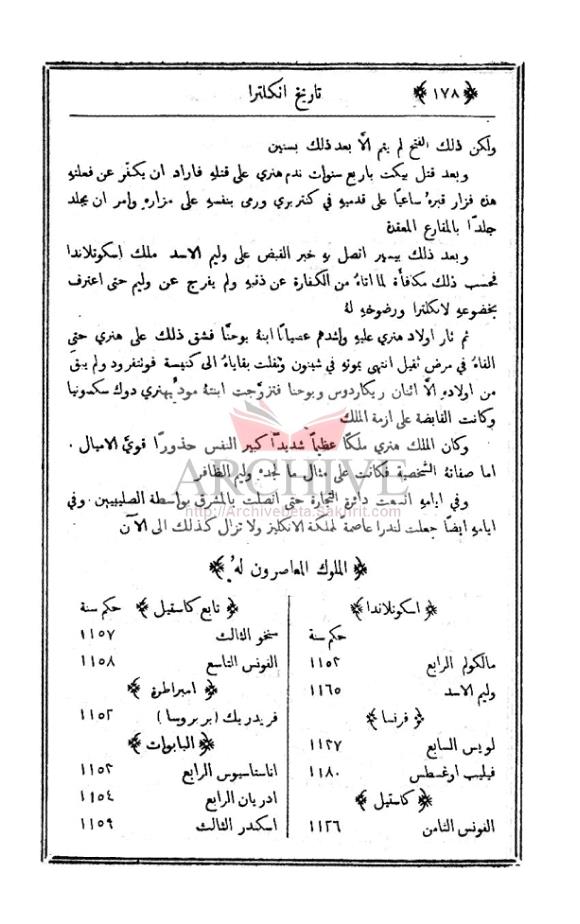 ﴿١٧٨﴾ تاريخ انكلترا
ولكن ذلك الفتح لم يتم الَّا بعد ذلك بسنين
وبعد قتل بيكت باربع سنوات ندم هنري على قتلهِ فاراد ان يكفّر عن فعلتهِ
هذه فزار قبرهُ ساعيًا على قدميهِ في كنتربري ورمى بنفسهِ على مزارهِ وامر ان يجلد
جلدًا بالمقارع المعقدة
وبعد ذلك بيسير اتصل بهِ خبر القبض على وليم الاسد ملك اسكوتلاندا
فحسب ذلك مكافأة لما اتاهُ من الكفارة عن ذنبهِ ولم يفرج عن وليم حتى اعترف
بخضوعهِ لانكلترا ورضوخهِ لهُ
ثم ثار اولاد هنري عليهِ واشدهم عصيانًا ابنهُ يوحنَّا فشق ذلك على هنري حتى
القاهُ في مرض ثقيل انتهى بموتهِ في شينون ونقلت بقاياهُ الى كنيسة فونتفرود ولم يبقَ
من اولادهِ الَّا اثنان ريكاردوس ويوحنا فتزوّجت ابنتهُ مودُ بهنري دوك سكسونيا
وكانت القابضة على ازمة الملك
وكان الملك هنري ملكًا عظيمًا شديدًا كبير النفس حذورًا قويَّ الاميال .
اما صفاتهُ الشخصية فكانت على مثال ما لجدهِ وليم الظافر
وفي ايامهِ اتسعت دائرة التجارة حتى اتصلت بالمشرق بواسطة الصليبيين وفي
ايامهِ ايضًا جعلت لندرا عاصمة لمملكة الانكليز ولا تزال كذلك الى الآن
ARCHIVE
http://Archivebeta.Sakhrit.com
﴿الملوك المعاصرون لهُ﴾
﴿اسكوتلاندا﴾
حكم سنة
مالكولم الرابع ١١٥٣
وليم الاسد ١١٦٥
﴿فرنسا﴾
لويس السابع ١١٣٧
فيليب اوغسطس ١١٨٠
﴿كاستيل﴾
الفونس الثامن ١١٢٦
﴿تابع كاستيل﴾ حكم سنة
سنخو الثالث ١١٥٧
الفونس التاسع ١١٥٨
﴿امبراطرة﴾
فريدريك (بربروسا) ١١٥٢
﴿البابوات﴾
اناستاسيوس الرابع ١١٥٣
ادريان الرابع ١١٥٤
اسكندر الثالث ١١٥٩